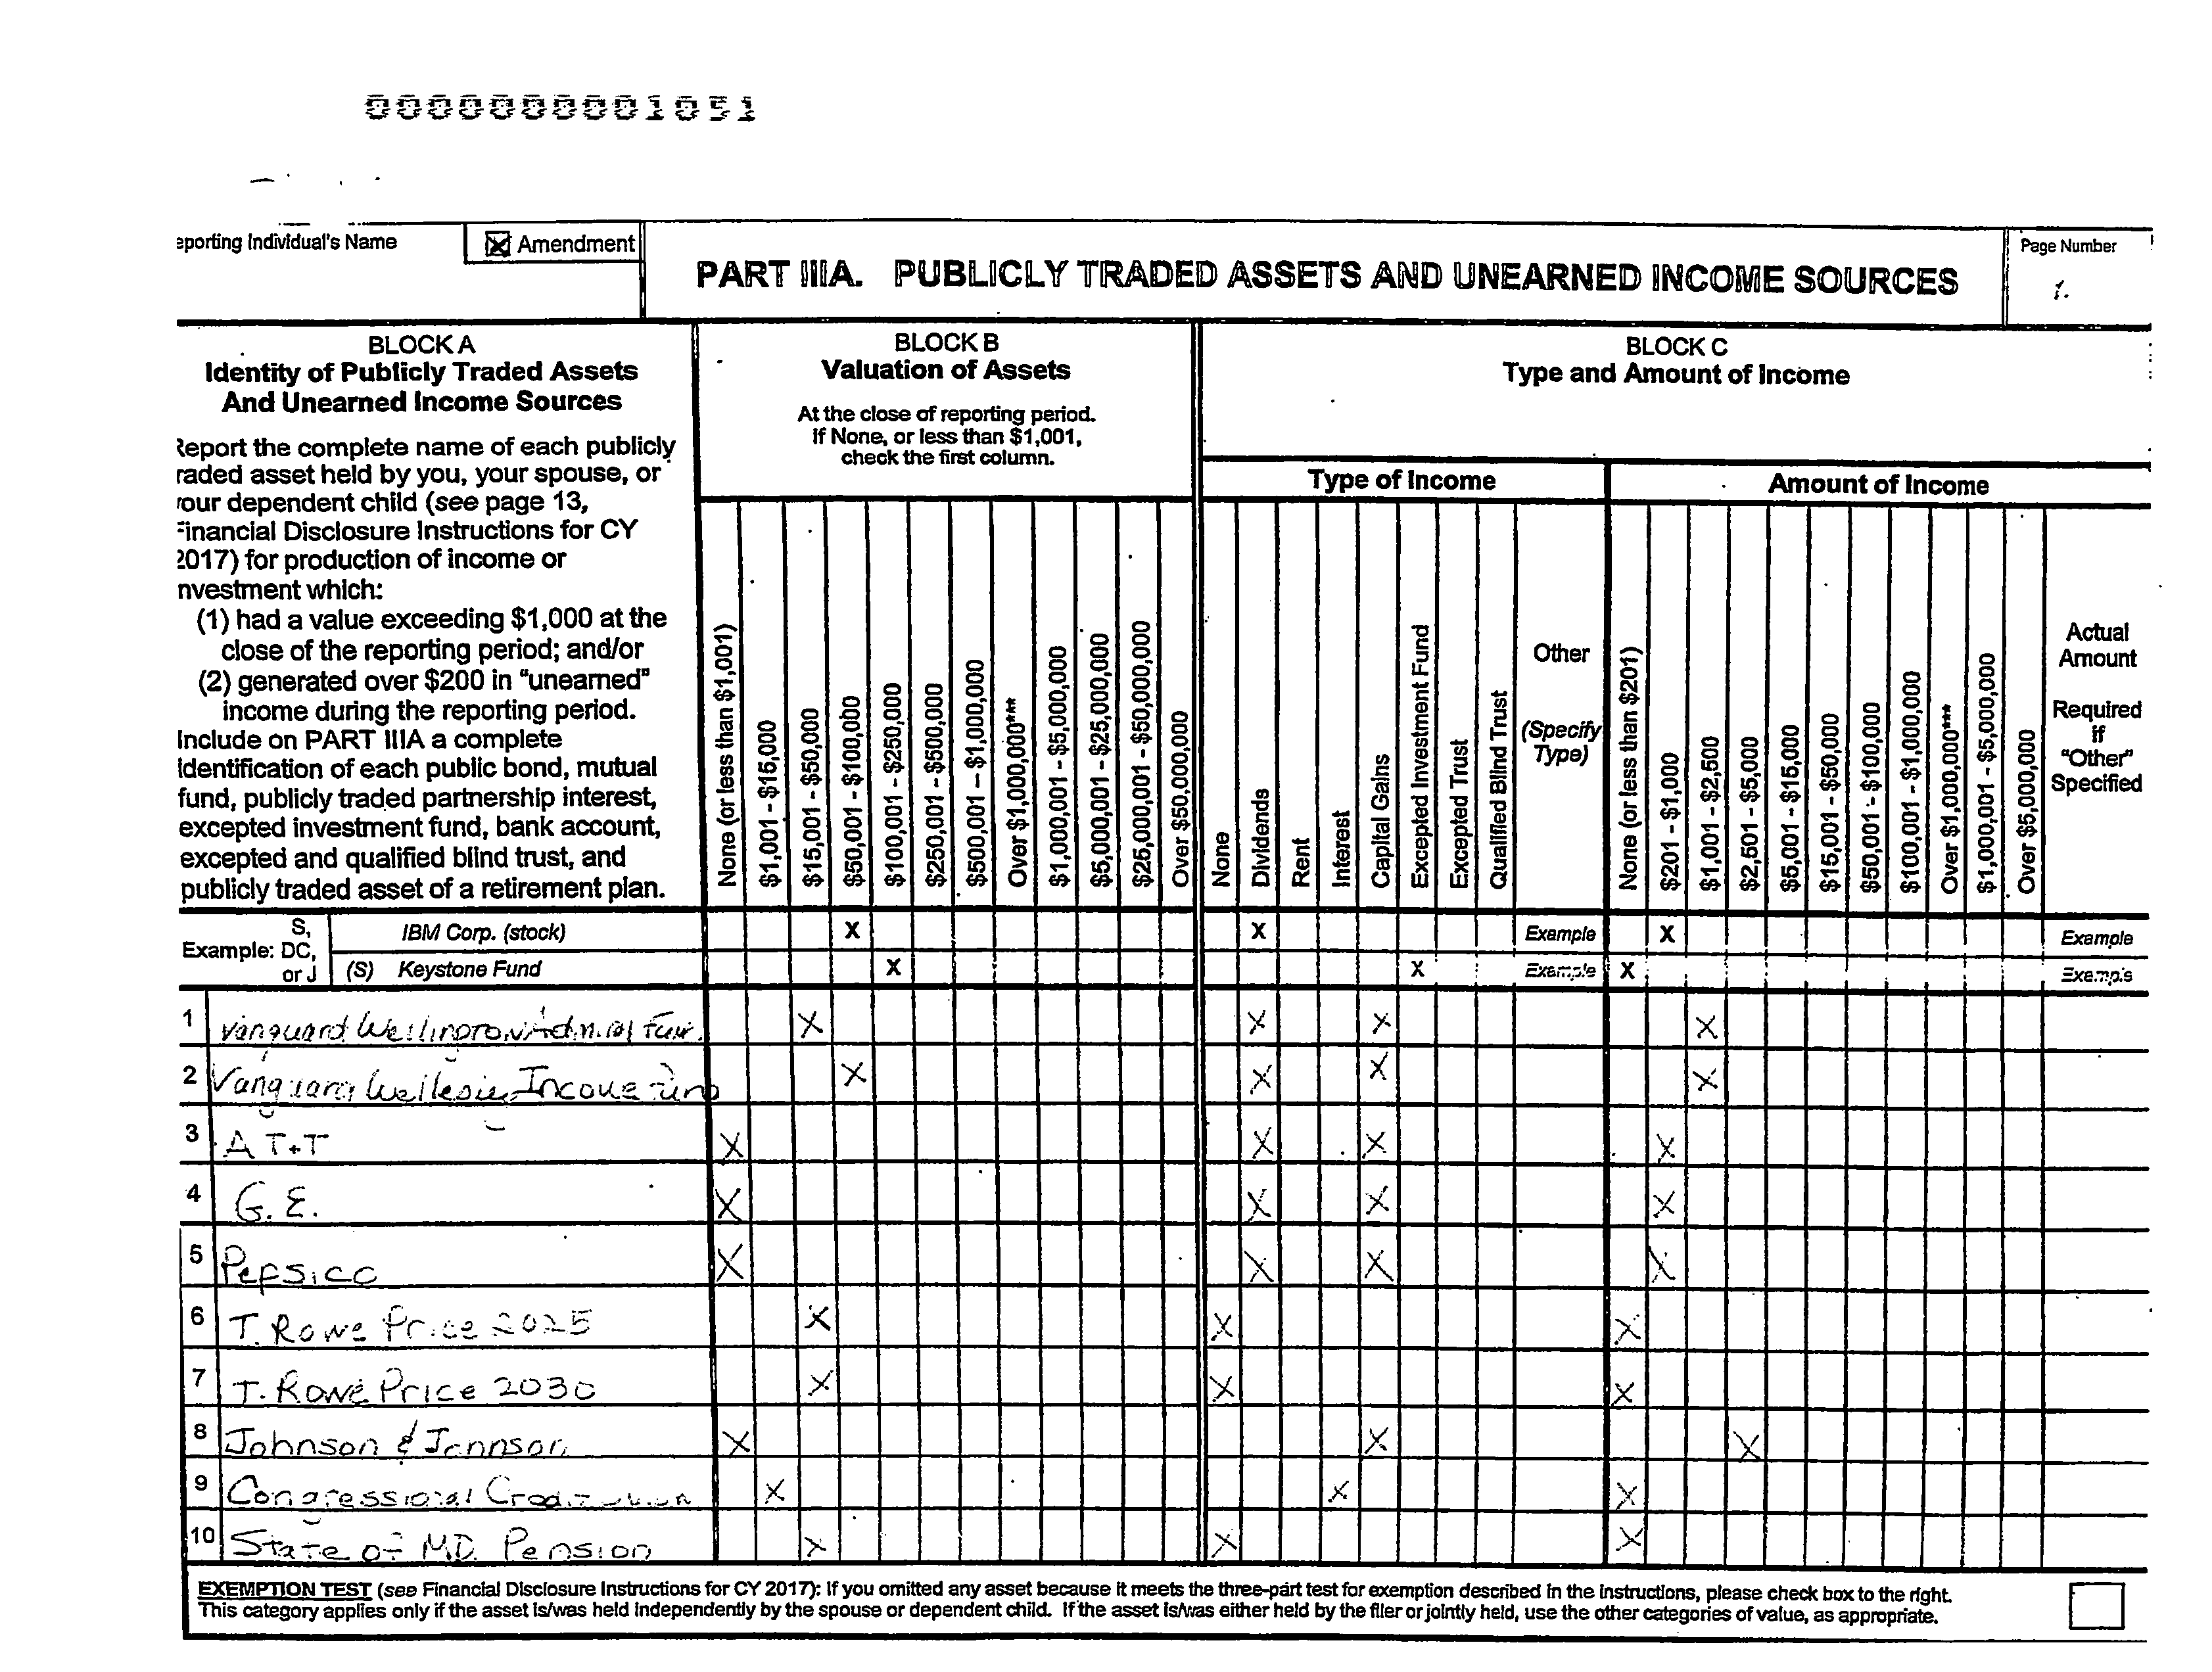 0000000001051
eporting Individual's Name
☒ Amendment
PART IIIA. PUBLICLY TRADED ASSETS AND UNEARNED INCOME SOURCES
Page Number
1.
BLOCK A
Identity of Publicly Traded Assets
And Unearned Income Sources
Report the complete name of each publicly
raded asset held by you, your spouse, or
your dependent child (see page 13,
Financial Disclosure Instructions for CY
2017) for production of income or
nvestment which:
(1) had a value exceeding $1,000 at the
close of the reporting period; and/or
(2) generated over $200 in "unearned"
income during the reporting period.
Include on PART IIIA a complete
identification of each public bond, mutual
fund, publicly traded partnership interest,
excepted investment fund, bank account,
excepted and qualified blind trust, and
publicly traded asset of a retirement plan.
BLOCK B
Valuation of Assets
At the close of reporting period.
If None, or less than $1,001,
check the first column.
BLOCK C
Type and Amount of Income
Type of Income
Amount of Income
None (or less than $1,001)
$1,001 - $15,000
$15,001 - $50,000
$50,001 - $100,000
$100,001 - $250,000
$250,001 - $500,000
$500,001 – $1,000,000
Over $1,000,000***
$1,000,001 - $5,000,000
$5,000,001 - $25,000,000
$25,000,001 - $50,000,000
Over $50,000,000
None
Dividends
Rent
Interest
Capital Gains
Excepted Investment Fund
Excepted Trust
Qualified Blind Trust
Other
(Specify
Type)
None (or less than $201)
$201 - $1,000
$1,001 - $2,500
$2,501 - $5,000
$5,001 - $15,000
$15,001 - $50,000
$50,001 - $100,000
$100,001 - $1,000,000
Over $1,000,000***
$1,000,001 - $5,000,000
Over $5,000,000
Actual
Amount
Required
if
"Other"
Specified
Example: S, DC, or J
IBM Corp. (stock) X X Example X Example
(S) Keystone Fund X X Example X Example
1 Vanguard Wellington Admiral X X X X
2 Vanguard Wellesley Income Fund X X X X
3 AT+T X X X X
4 G.E. X X X X
5 Pepsico X X X X
6 T. Rowe Price 2025 X X X
7 T. Rowe Price 2030 X X X
8 Johnson & Johnson X X X
9 Congressional Credit Union X X X
10 State of MD. Pension X X X
EXEMPTION TEST (see Financial Disclosure Instructions for CY 2017): If you omitted any asset because it meets the three-part test for exemption described in the instructions, please check box to the right.
This category applies only if the asset is/was held independently by the spouse or dependent child. If the asset is/was either held by the filer or jointly held, use the other categories of value, as appropriate.